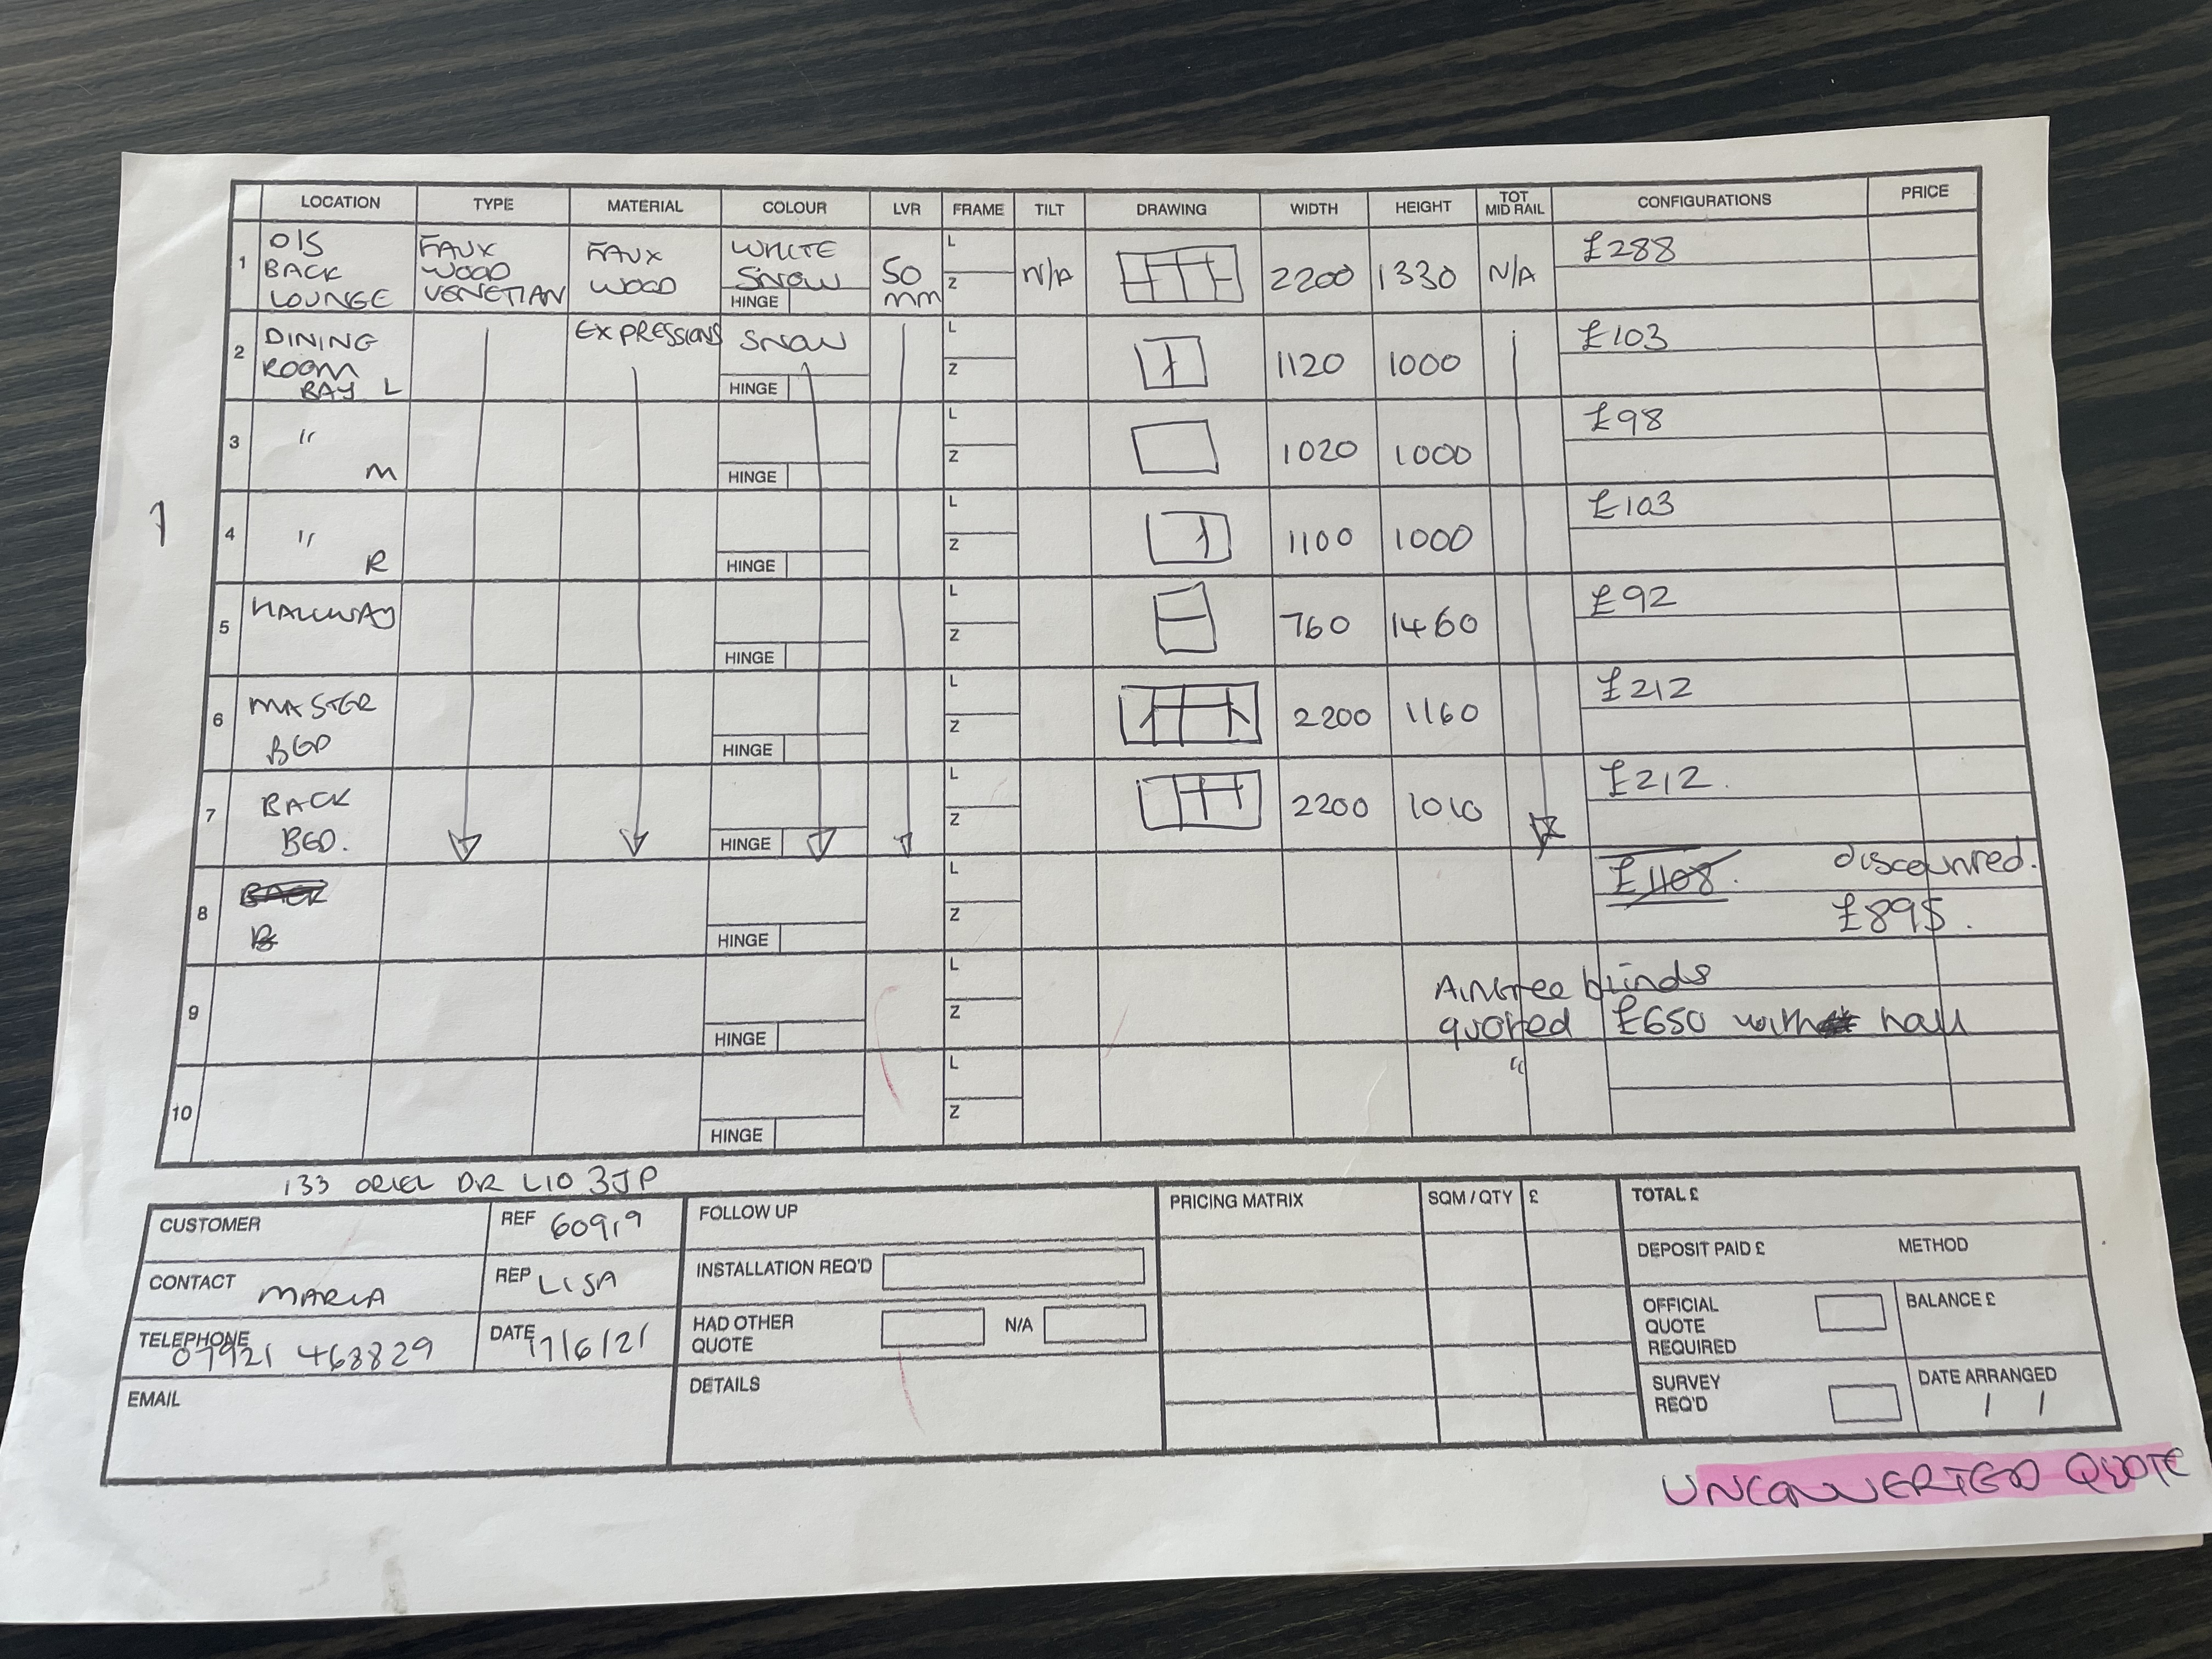 LOCATION TYPE MATERIAL COLOUR LVR FRAME TILT DRAWING WIDTH HEIGHT TOT MID RAIL CONFIGURATIONS PRICE
1 O/S BACK LOUNGE FAUX WOOD VENETIAN FAUX WOOD WHITE SNOW HINGE 50 mm L Z N/A 2200 1330 N/A £288
2 DINING ROOM BAY L EXPRESSIONS SNOW HINGE L Z 1120 1000 £103
3 " M HINGE L Z 1020 1000 £98
1
4 " R HINGE L Z 1100 1000 £103
5 HALLWAY HINGE L Z 760 1460 £92
6 MASTER BED HINGE L Z 2200 1160 £212
7 BACK BED. HINGE L Z 2200 1010 £212.
8 BACK B HINGE L Z £1108. discounted.
£895.
9 HINGE L Z Aintree blinds
quoted £650 with hall
"
10 HINGE L Z
133 ORIEL DR L10 3JP
CUSTOMER
REF 60919
CONTACT MARIA
REP LISA
TELEPHONE 07921 468829
DATE 17/6/21
EMAIL
FOLLOW UP
INSTALLATION REQ'D
HAD OTHER QUOTE N/A
DETAILS
PRICING MATRIX SQM / QTY £
TOTAL £
DEPOSIT PAID £ METHOD
OFFICIAL QUOTE REQUIRED
BALANCE £
SURVEY REQ'D
DATE ARRANGED
/ /
UNCONVERTED QUOTE